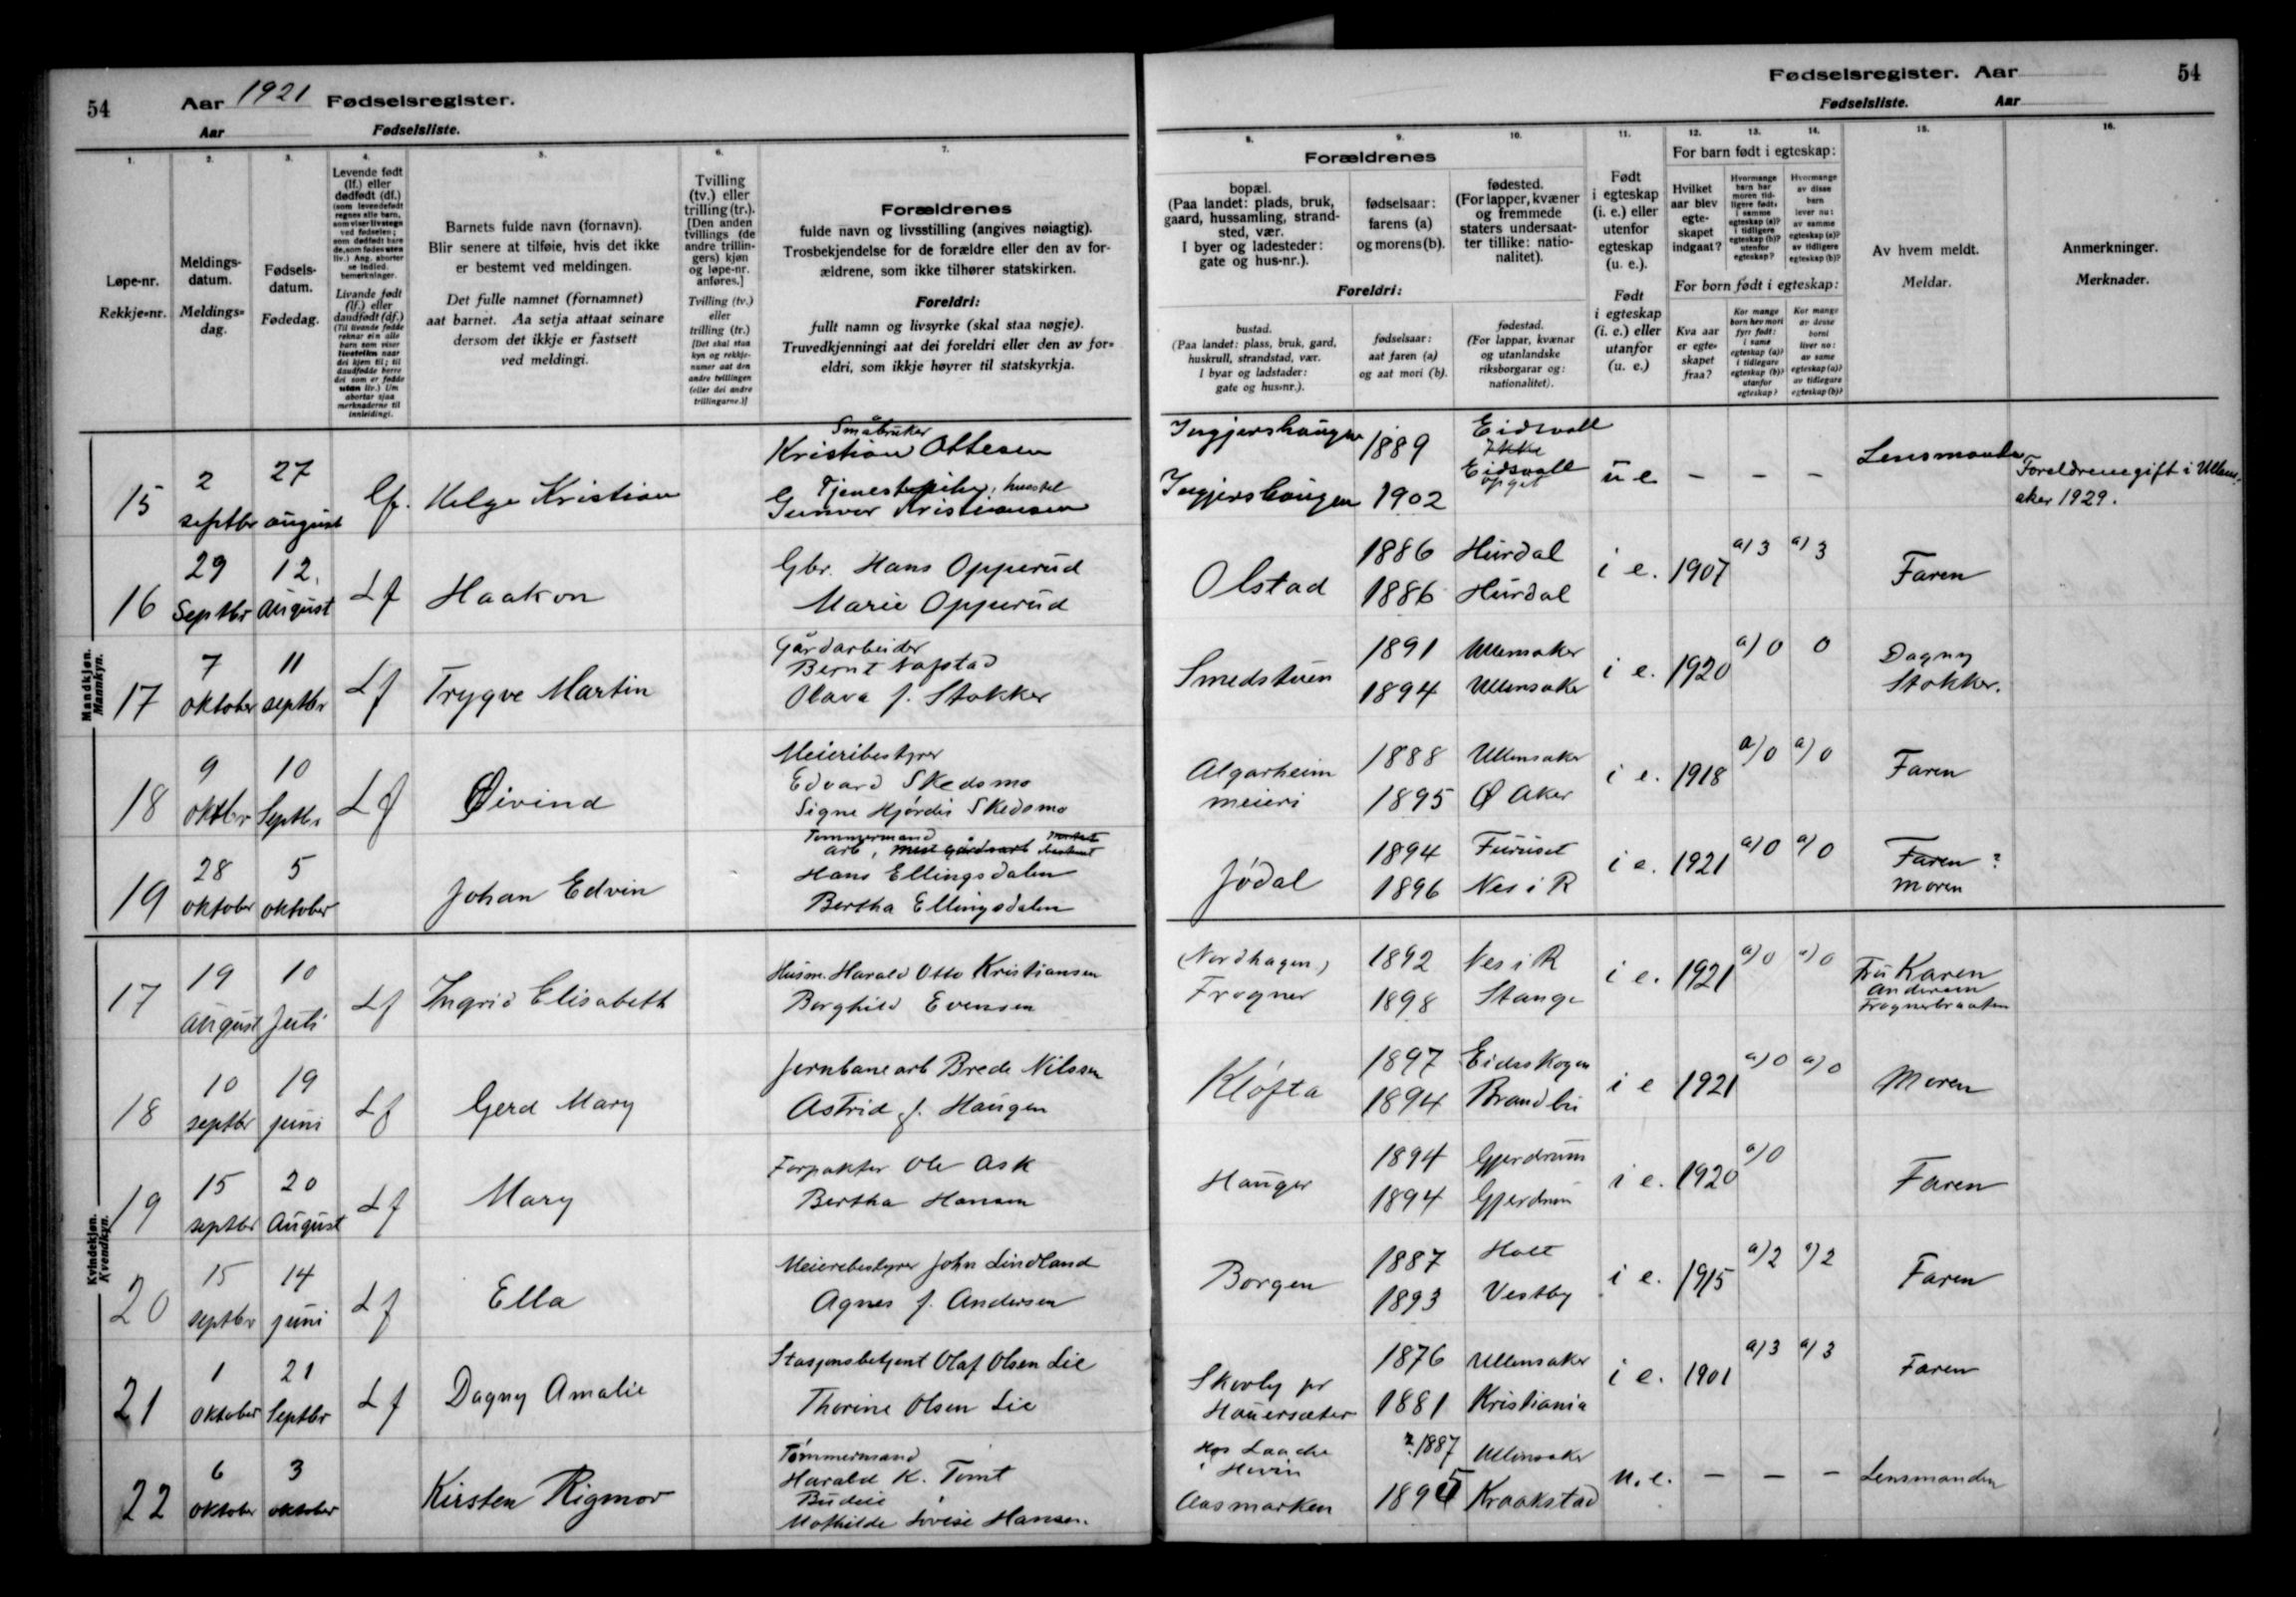 54
Aar 1921 Fødselsregister.
Aar Fødselsliste.
1. 2. 3. 4. 5. 6. 7.
Løpe-nr.
Rekkje=nr.
Meldings-
datum.
Meldings=
dag.
Fødsels-
datum.
Fødedag.
Levende født
(lf.) eller
dødfødt (df.)
Livande født
(lf.) eller
daudfødt (df.)
Barnets fulde navn (fornavn).
Blir senere at tilføie, hvis det ikke
er bestemt ved meldingen.
Det fulle namnet (fornamnet)
aat barnet. Aa setja attaat seinare
dersom det ikkje er fastsett
ved meldingi.
Tvilling
(tv.) eller
trilling (tr.).
[Den anden
tvillings (de
andre trillin-
gers) kjøn
og løpe-nr.
anføres.]
Tvilling (tv.)
eller
trilling (tr.)
Forældrenes
fulde navn og livsstilling (angives nøiagtig).
Trosbekjendelse for de forældre eller den av for-
ældrene, som ikke tilhører statskirken.
Foreldri:
fullt namn og livsyrke (skal staa nøgje).
Truvedkjenningi aat dei foreldri eller den av for=
eldri, som ikkje høyrer til statskyrkja.
Mandkjøn.
Mannkyn.
15
2
septbr
27
august
Lf.
Helge Kristian
Småbruker
Kristian Ottesen
Gunvor Kristiansen
16
29
Septbr
12.
August
Lf
Haakon
Gbr. Hans Opperud
Marie Opperud
17
7
oktober
11
septbr
Lf
Trygve Martin
Gårdarbeider
Bernt Nafstad
Olava f. Stokker
18
9
oktbr
10
Septbr
Lf
Øivind
Meieribestyrer
Edvard Skedsmo
Signe Hjørdis Skedsmo
19
28
oktober
5
oktober
Johan Edvin
Tømmermand
arb,
Hans Ellingsdalen
Bertha Ellingsdalen
Kvindekjøn.
Kvendkyn.
17
19
August
10
Juli
Lf
Ingrid Elisabeth
Husm. Harald Otto Kristiansen
Borghild Evensen
18
10
septbr
19
juni
Lf
Gerd Mary
Jernbanearb Brede Nilssen
Astrid f. Haugen
19
15
septbr
20
August
Lf
Mary
Forpakter Ole Ask
Bertha Hansen
20
15
septbr
14
juni
Lf
Ella
Meieribestyrer John Lindland
Agnes f. Andersen
21
1
oktober
21
Septbr
Lf
Dagny Amalie
Stasjonsbetjent Olaf Olsen Lie
Thorine Olsen Lie
22
6
oktober
3
oktober
Kirsten Rigmor
Tømmermand
Harald K. Tømt
Budeie
Mathilde Lovise Hansen.
Fødselsregister. Aar 54
Fødselsliste. Aar
8. 9. 10. 11. 12. 13. 14. 15. 16.
Forældrenes
bopæl.
(Paa landet: plads, bruk,
gaard, hussamling, strand-
sted, vær.
I byer og ladesteder:
gate og hus-nr.).
fødselsaar:
farens (a)
og morens (b).
fødested.
(For lapper, kvæner
og fremmede
staters undersaat-
ter tillike: natio-
nalitet).
Foreldri:
bustad.
(Paa landet: plass, bruk, gard,
huskrull, strandstad, vær.
I byar og ladstader:
gate og hus=nr.).
fødselsaar:
aat faren (a)
og aat mori (b).
fødestad.
(For lappar, kvænar
og utanlandske
riksborgarar og:
nationalitet).
Født
i egteskap
(i. e.) eller
utenfor
egteskap
(u. e.).
Født
i egteskap
(i. e.) eller
utanfor
(u. e.)
For barn født i egteskap:
Hvilket
aar blev
egte-
skapet
indgaat?
For born født i egteskap:
Kva aar
er egte-
skapet
fraa?
Av hvem meldt.
Meldar.
Anmerkninger.
Merknader.
1889
Eidsvoll
Ikke
Eidsvoll
opgit
1902
u e – – –
Lensmanden
Foreldrene gift i Ullens-
aker 1929.
Olstad
1886 Hurdal
1886 Hurdal
i e. 1907 a) 3 a) 3
Faren
Smedstuen
1891 Ullensaker
1894 Ullensaker
i e. 1920 a) 0 0
Dagny
Stokker.
Algarheim
meieri
1888 Ullensaker
1895 Ø Aker
i e. 1918 a) 0 a) 0
Faren
Jødal
1894 Furuset
1896 Nes i R
i e. 1921 a) 0 a) 0
Faren ?
moren
(Nordhagen)
Frogner
1892 Nes i R
1898 Stange
i e. 1921 a) 0 a) 0
Fru Karen
Andersen
Frognerbraaten
Kløfta
1897 Eidsskogen
1894 Brandbu
i e 1921 a) 0 a) 0
Moren
Hauger
1894 Gjerdrum
1894 Gjerdrum
i e. 1920 a) 0
Faren
Borgen
1887 Holt
1893 Vestby
i e. 1915 a) 2 a) 2
Faren
Skovly pr
Hauersæter
1876 Ullensaker
1881 Kristiania
i e. 1901 a) 3 a) 3
Faren
Hos Laache
i Hovin
Aasmarken
? 1887 Ullensaker
1895 Kraakstad
u. e. – – –
Lensmanden